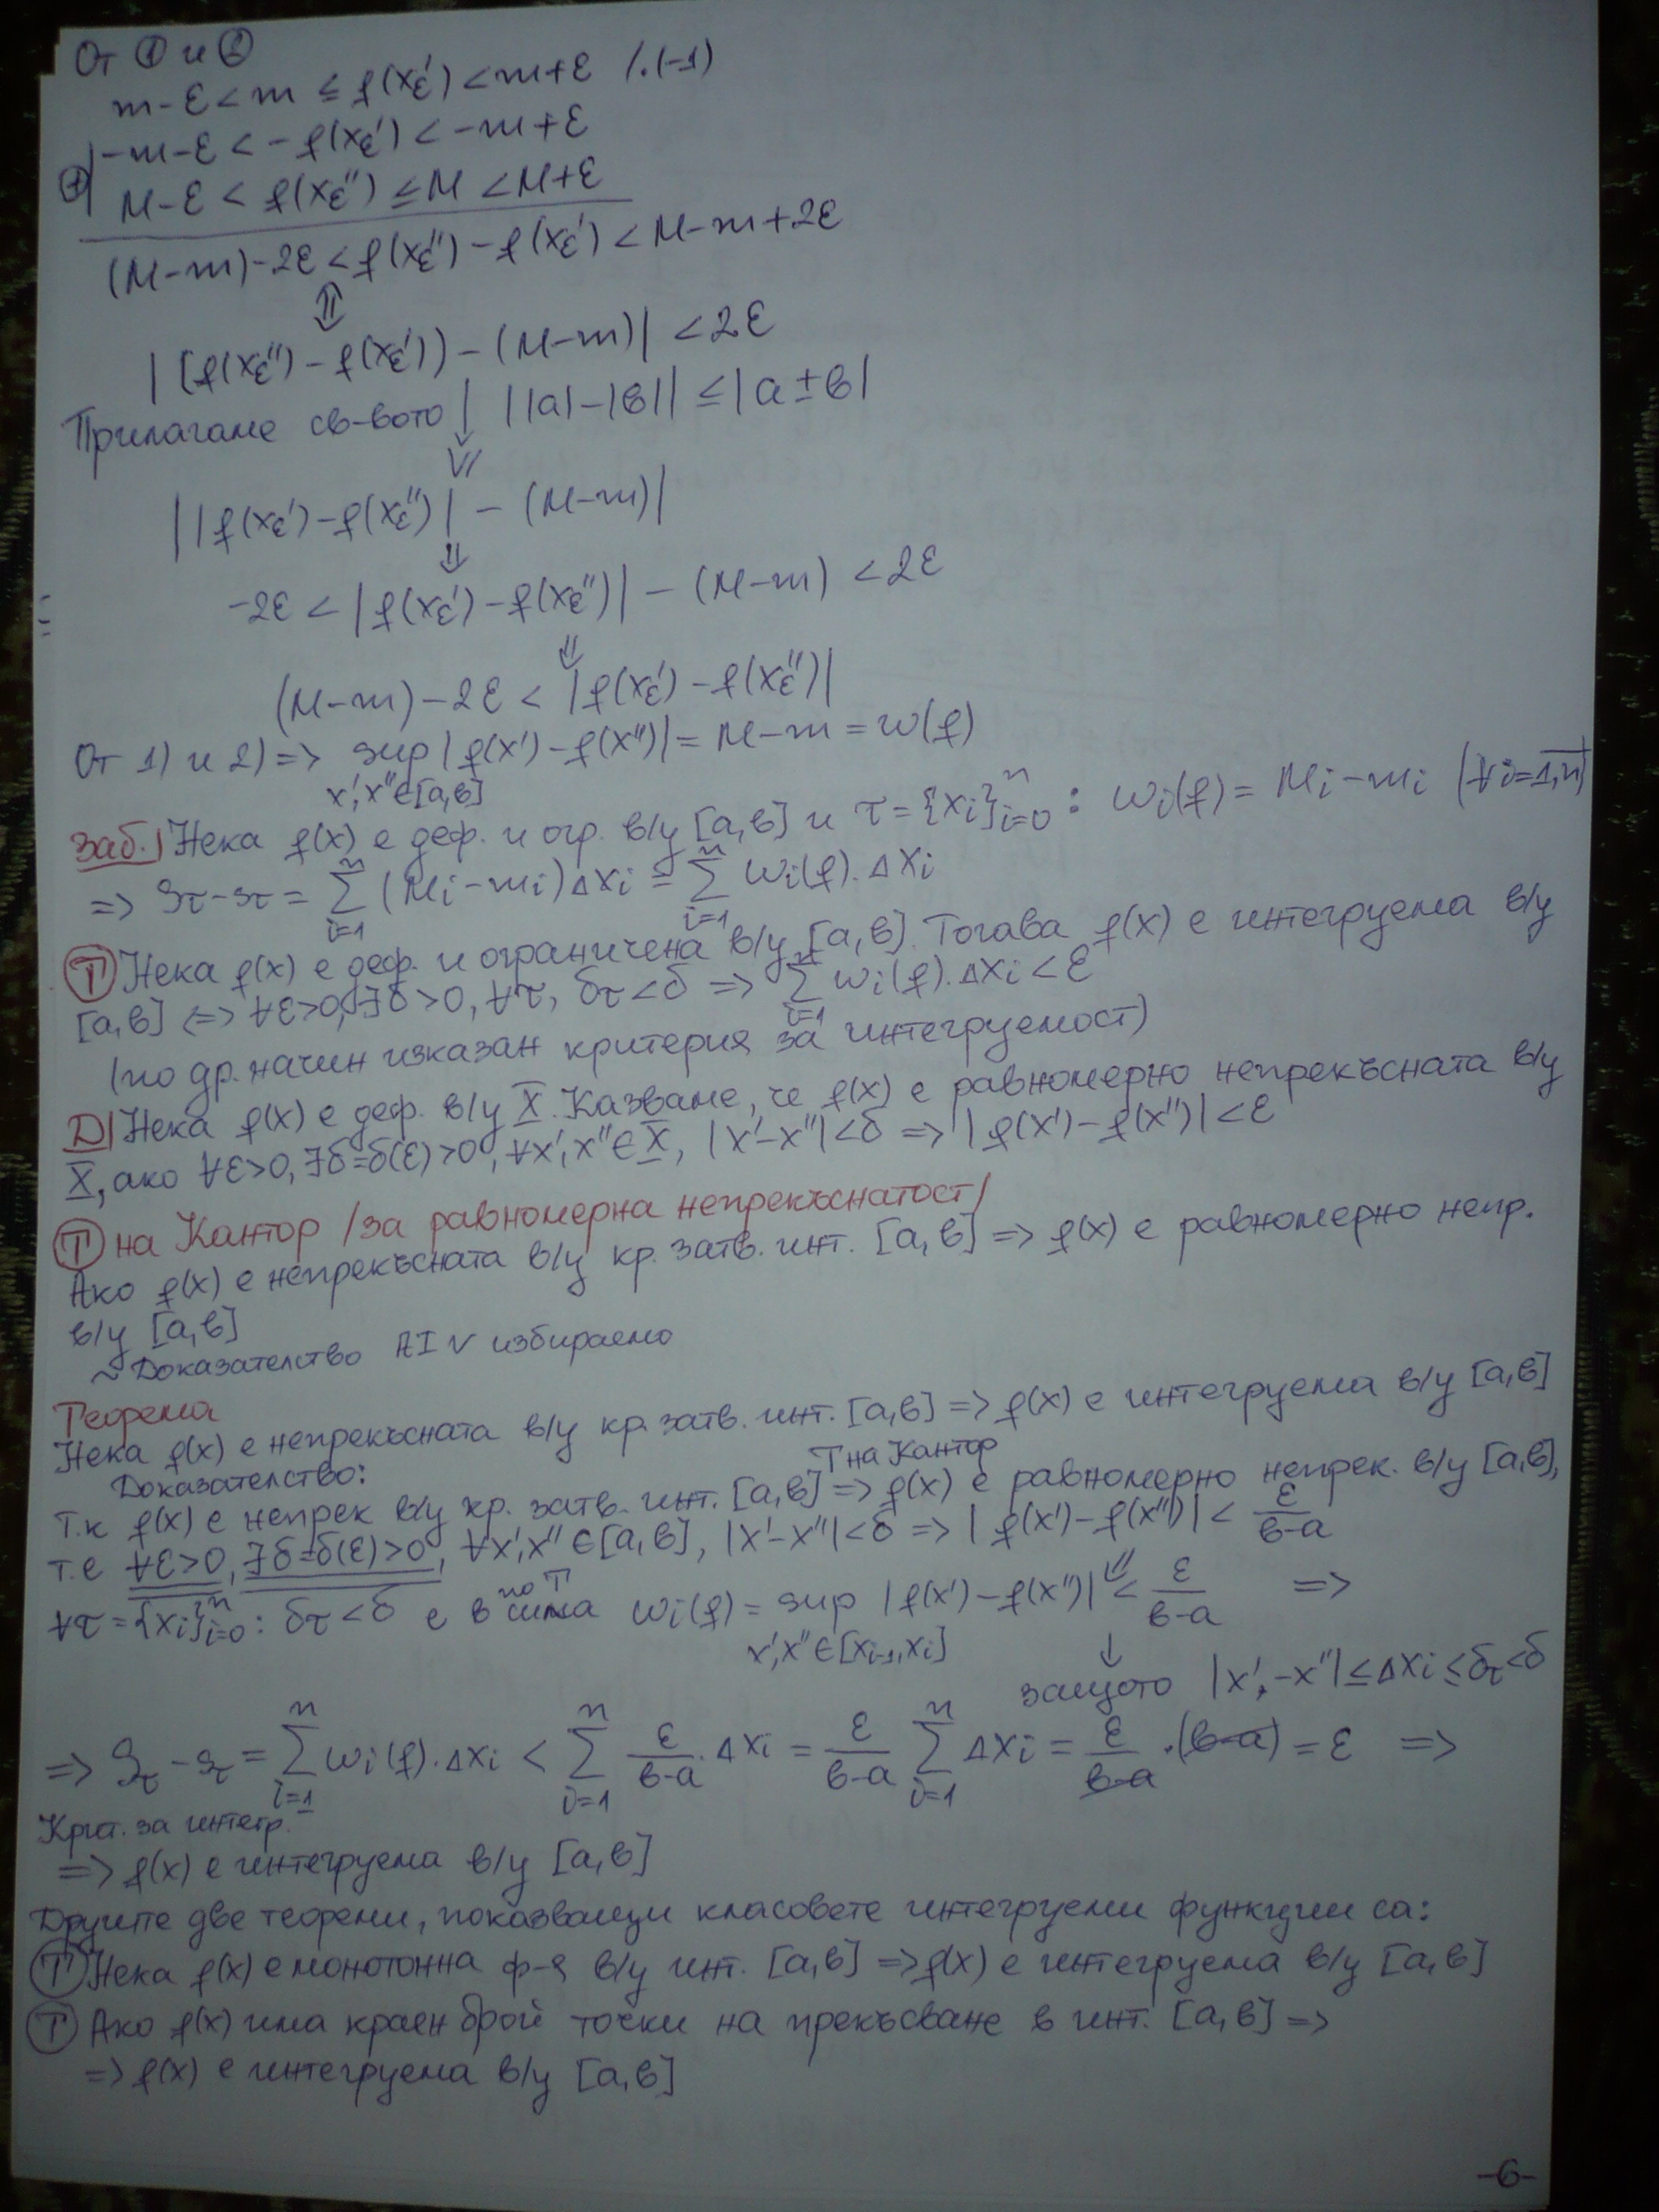 От ① и ②
m-ε < m ≤ f(xε') < m+ε /.(-1)
-m-ε < -f(xε') < -m+ε
⊕ M-ε < f(xε'') ≤ M < M+ε
(M-m)-2ε < f(xε'') - f(xε') < M-m+2ε
⇕
|[f(xε'') - f(xε')) - (M-m)| < 2ε
Прилагаме св-вото ↓ ||a|-|в|| ≤ |a±в|
V/
||f(xε') - f(xε'')| - (M-m)|
⇓
-2ε < |f(xε') - f(xε'')| - (M-m) < 2ε
⇓
(M-m) - 2ε < |f(xε') - f(xε'')|
От 1) и 2) => sup |f(x') - f(x'')| = M-m = ω(f)
x',x''∈[a,в]
Заб.| Нека f(x) е деф. и огр. в/у [a,в] и τ = {xi}ⁿi=0 : ωi(f) = Mi - mi (∀i=1,n)
=> Sτ - sτ = Σⁿi=1 (Mi - mi)Δxi = Σⁿi=1 ωi(f).Δxi
Ⓣ Нека f(x) е деф. и ограничена в/у [a,в]. Тогава f(x) е интегруема в/у
[a,в] <=> ∀ε>0, ∃δ>0, ∀τ, δτ<δ => Σⁿi=1 ωi(f).Δxi < ε
(по др. начин изказан критерия за интегруемост)
Д| Нека f(x) е деф. в/у X. Казваме, че f(x) е равномерно непрекъсната в/у
X, ако ∀ε>0, ∃δ=δ(ε)>0, ∀x',x''∈X, |x'-x''|<δ => |f(x')-f(x'')|<ε
Ⓣ на Кантор /за равномерна непрекъснатост/
Ако f(x) е непрекъсната в/у кр. затв. инт. [a,в] => f(x) е равномерно непр.
в/у [a,в]
~ Доказателство АІV избираемо
Теорема
Нека f(x) е непрекъсната в/у кр. затв. инт. [a,в] => f(x) е интегруема в/у [a,в]
Доказателство:
Т на Кантор
Т.к f(x) е непрек в/у кр. затв. инт. [a,в] => f(x) е равномерно непрек. в/у [a,в],
т.е ∀ε>0, ∃δ=δ(ε)>0, ∀x',x''∈[a,в], |x'-x''|<δ => |f(x')-f(x'')| < ε/(в-a)
по Т
∀τ={xi}ⁿi=0 : δτ<δ е в сила ωi(f) = sup |f(x')-f(x'')| ⇙< ε/(в-a) =>
x',x''∈[xi-1,xi] ↓
защото |x'-x''| ≤ Δxi ≤ δτ < δ
=> Sτ - sτ = Σⁿi=1 ωi(f).Δxi < Σⁿi=1 ε/(в-a).Δxi = ε/(в-a) Σⁿi=1 Δxi = ε/(в-a) .(в-a) = ε =>
Крит. за интегр.
=> f(x) е интегруема в/у [a,в]
Другите две теореми, показващи класовете интегруеми функции са:
Ⓣ Нека f(x) е монотонна ф-я в/у инт. [a,в] => f(x) е интегруема в/у [a,в]
Ⓣ Ако f(x) има краен брой точки на прекъсване в инт. [a,в] =>
=> f(x) е интегруема в/у [a,в]
-6-